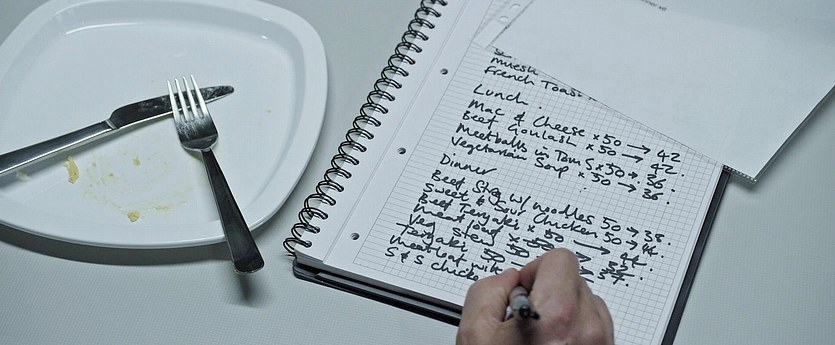 muesli
French Toast
Lunch.
Mac & Cheese x50 → 42
Beef Goulash x50 → 42.
Meatballs in Tom S x50 → 36.
Vegetarian Soup x50 → 36.
Dinner
Beef Stew w/ noodles 50 → 38.
Sweet & Sour Chicken 50 →
Beef Teryaki x50 →
meatloaf x50
Veg Stew 50
Teryaki 50
meatloaf
S & S chicken